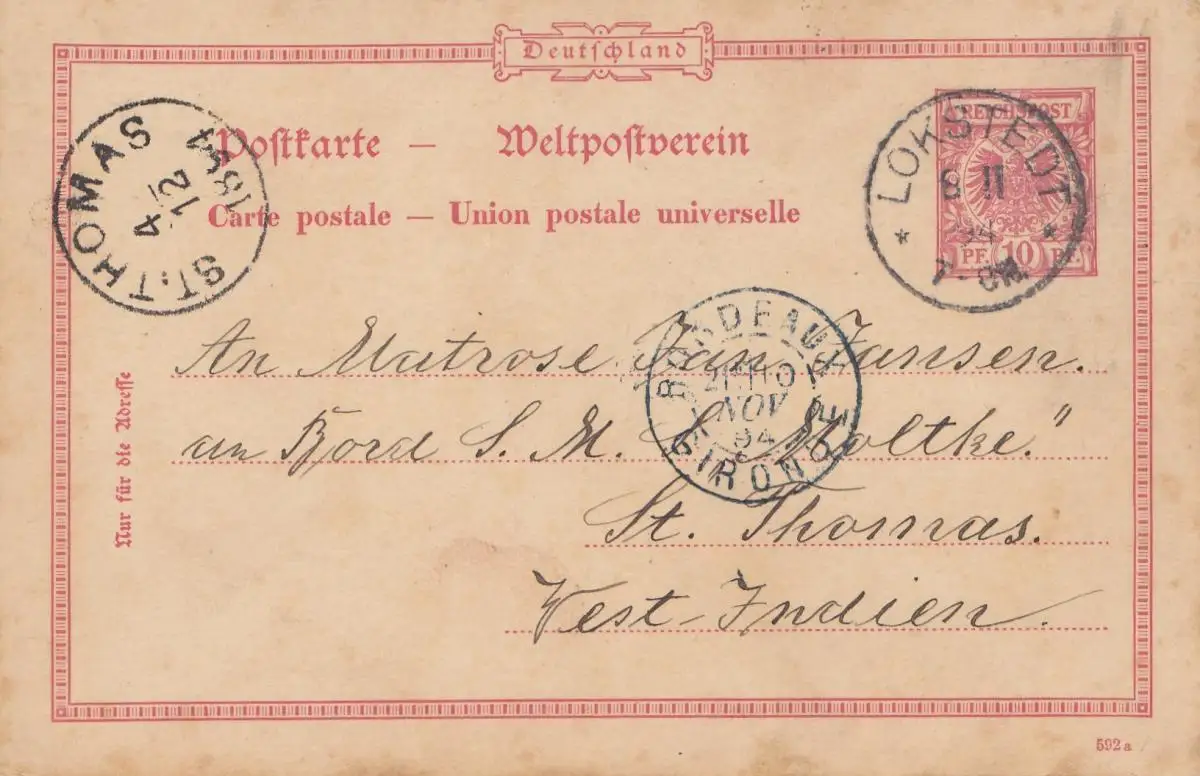 Deutschland
Postkarte — Weltpostverein
Carte postale — Union postale universelle
ST. THOMAS
4/12
1894
REICHSPOST
10
PF. PF.
* LOKSTEDT *
8 11
94
7-8N.
BORDEAUX
GIRONDE
NOV
94
An Matrose Jan Jansen.
an Bord S. M. S. „Moltke."
St. Thomas.
West-Indien.
Nur für die Adresse
592a